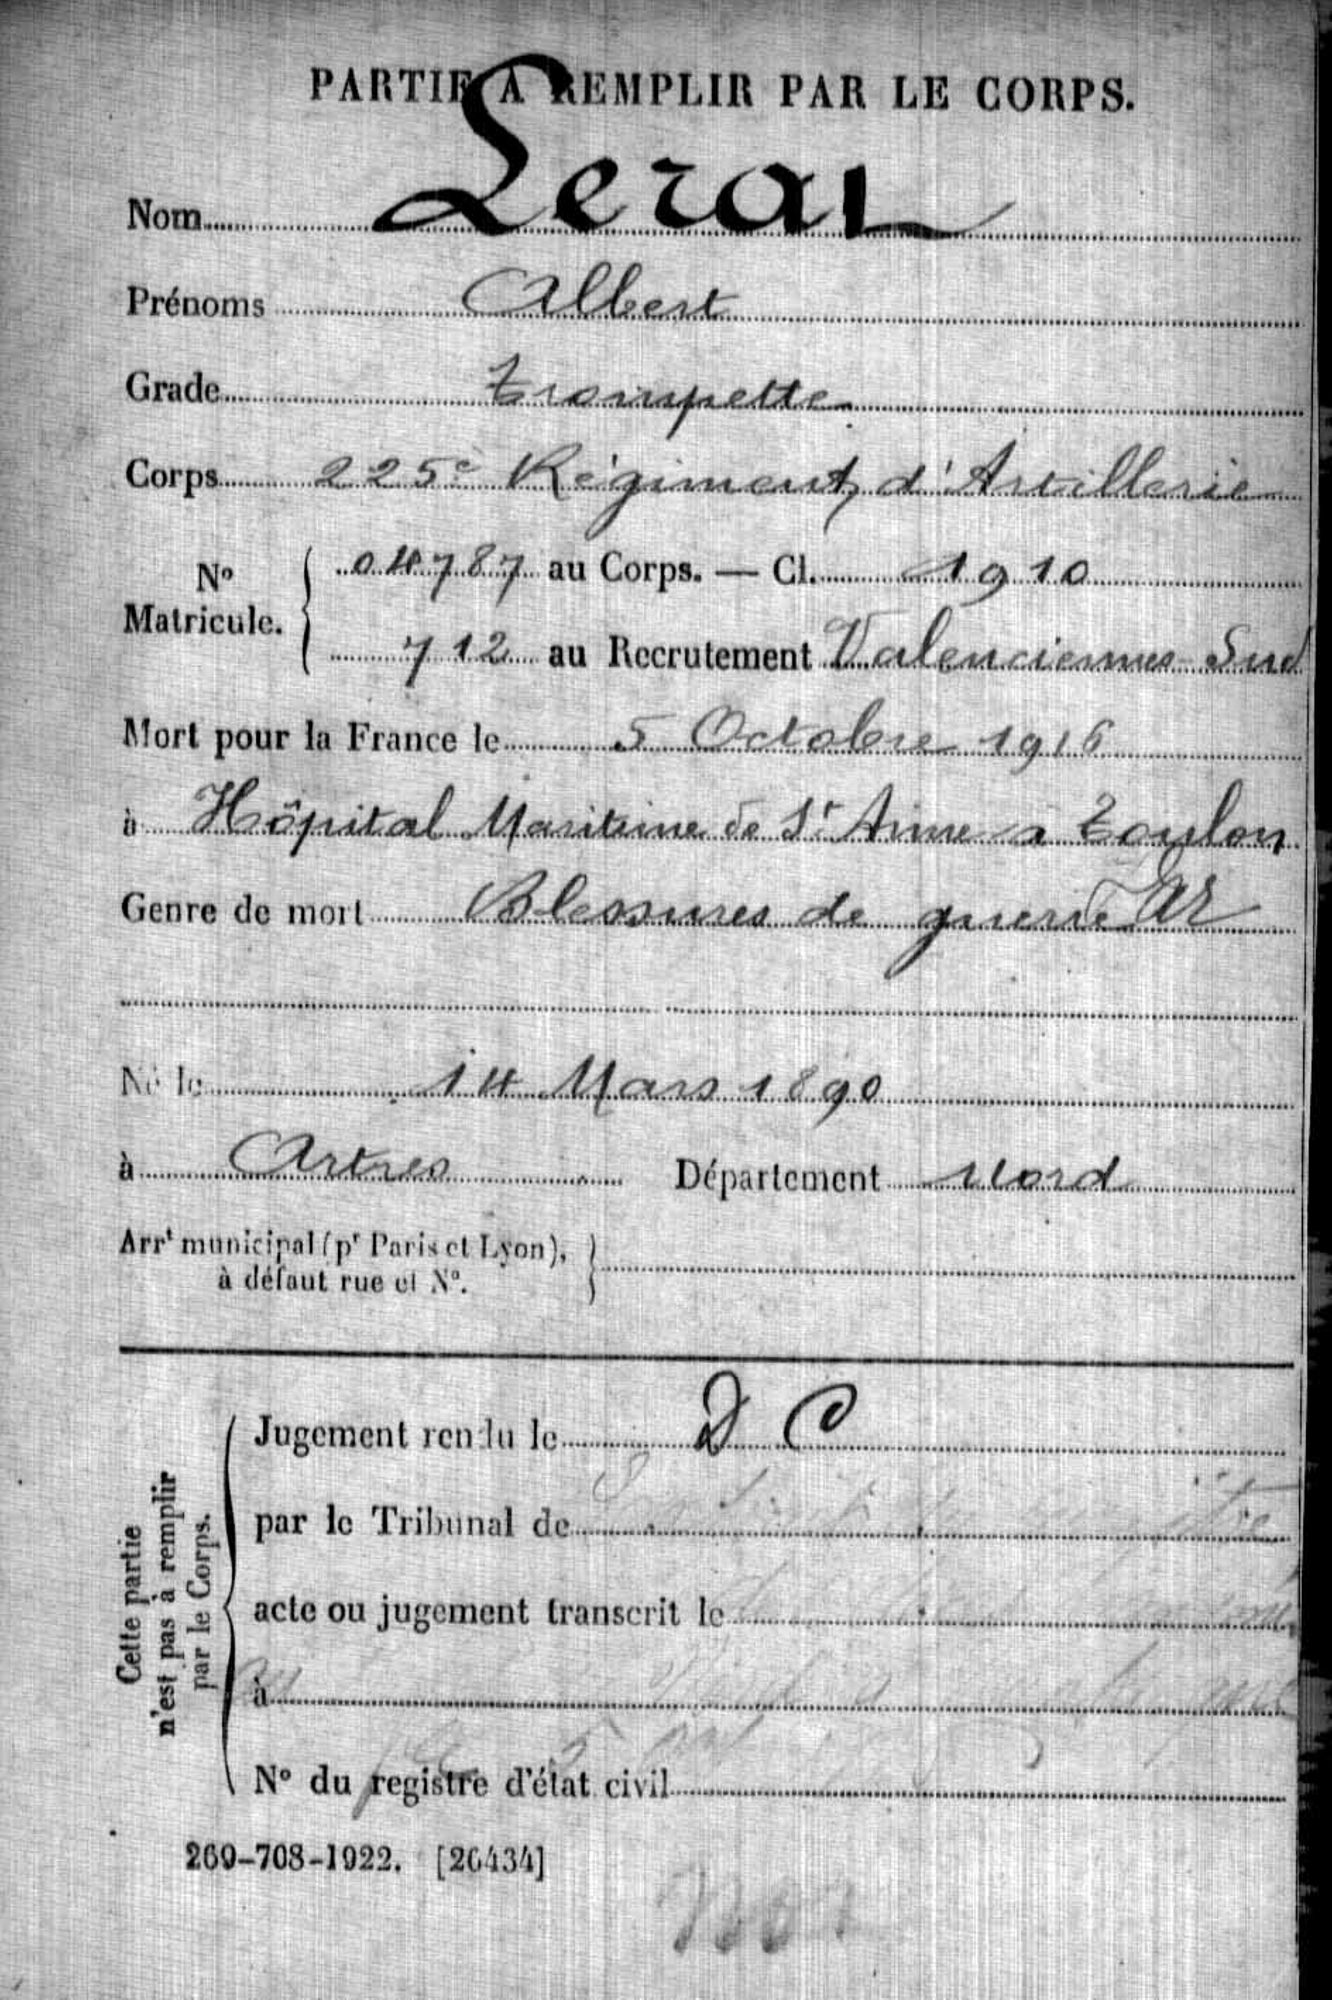 PARTIE A REMPLIR PAR LE CORPS.
Nom Leral
Prénoms Albert
Grade trompette
Corps 225e Régiment d'Artillerie
No Matricule. { 04787 au Corps. — Cl. 1910
712 au Recrutement Valenciennes-Sud
Mort pour la France le 5 Octobre 1916
à Hôpital Maritime de St Anne à Toulon
Genre de mort Blessures de guerre Var
Né le 14 Mars 1890
à Artres Département Nord
Arrt municipal (pr Paris et Lyon),
à défaut rue et No.
Cette partie
n'est pas à remplir
par le Corps.
Jugement rendu le D C
par le Tribunal de
acte ou jugement transcrit le
à
No du registre d'état civil
269-708-1922. [26434]